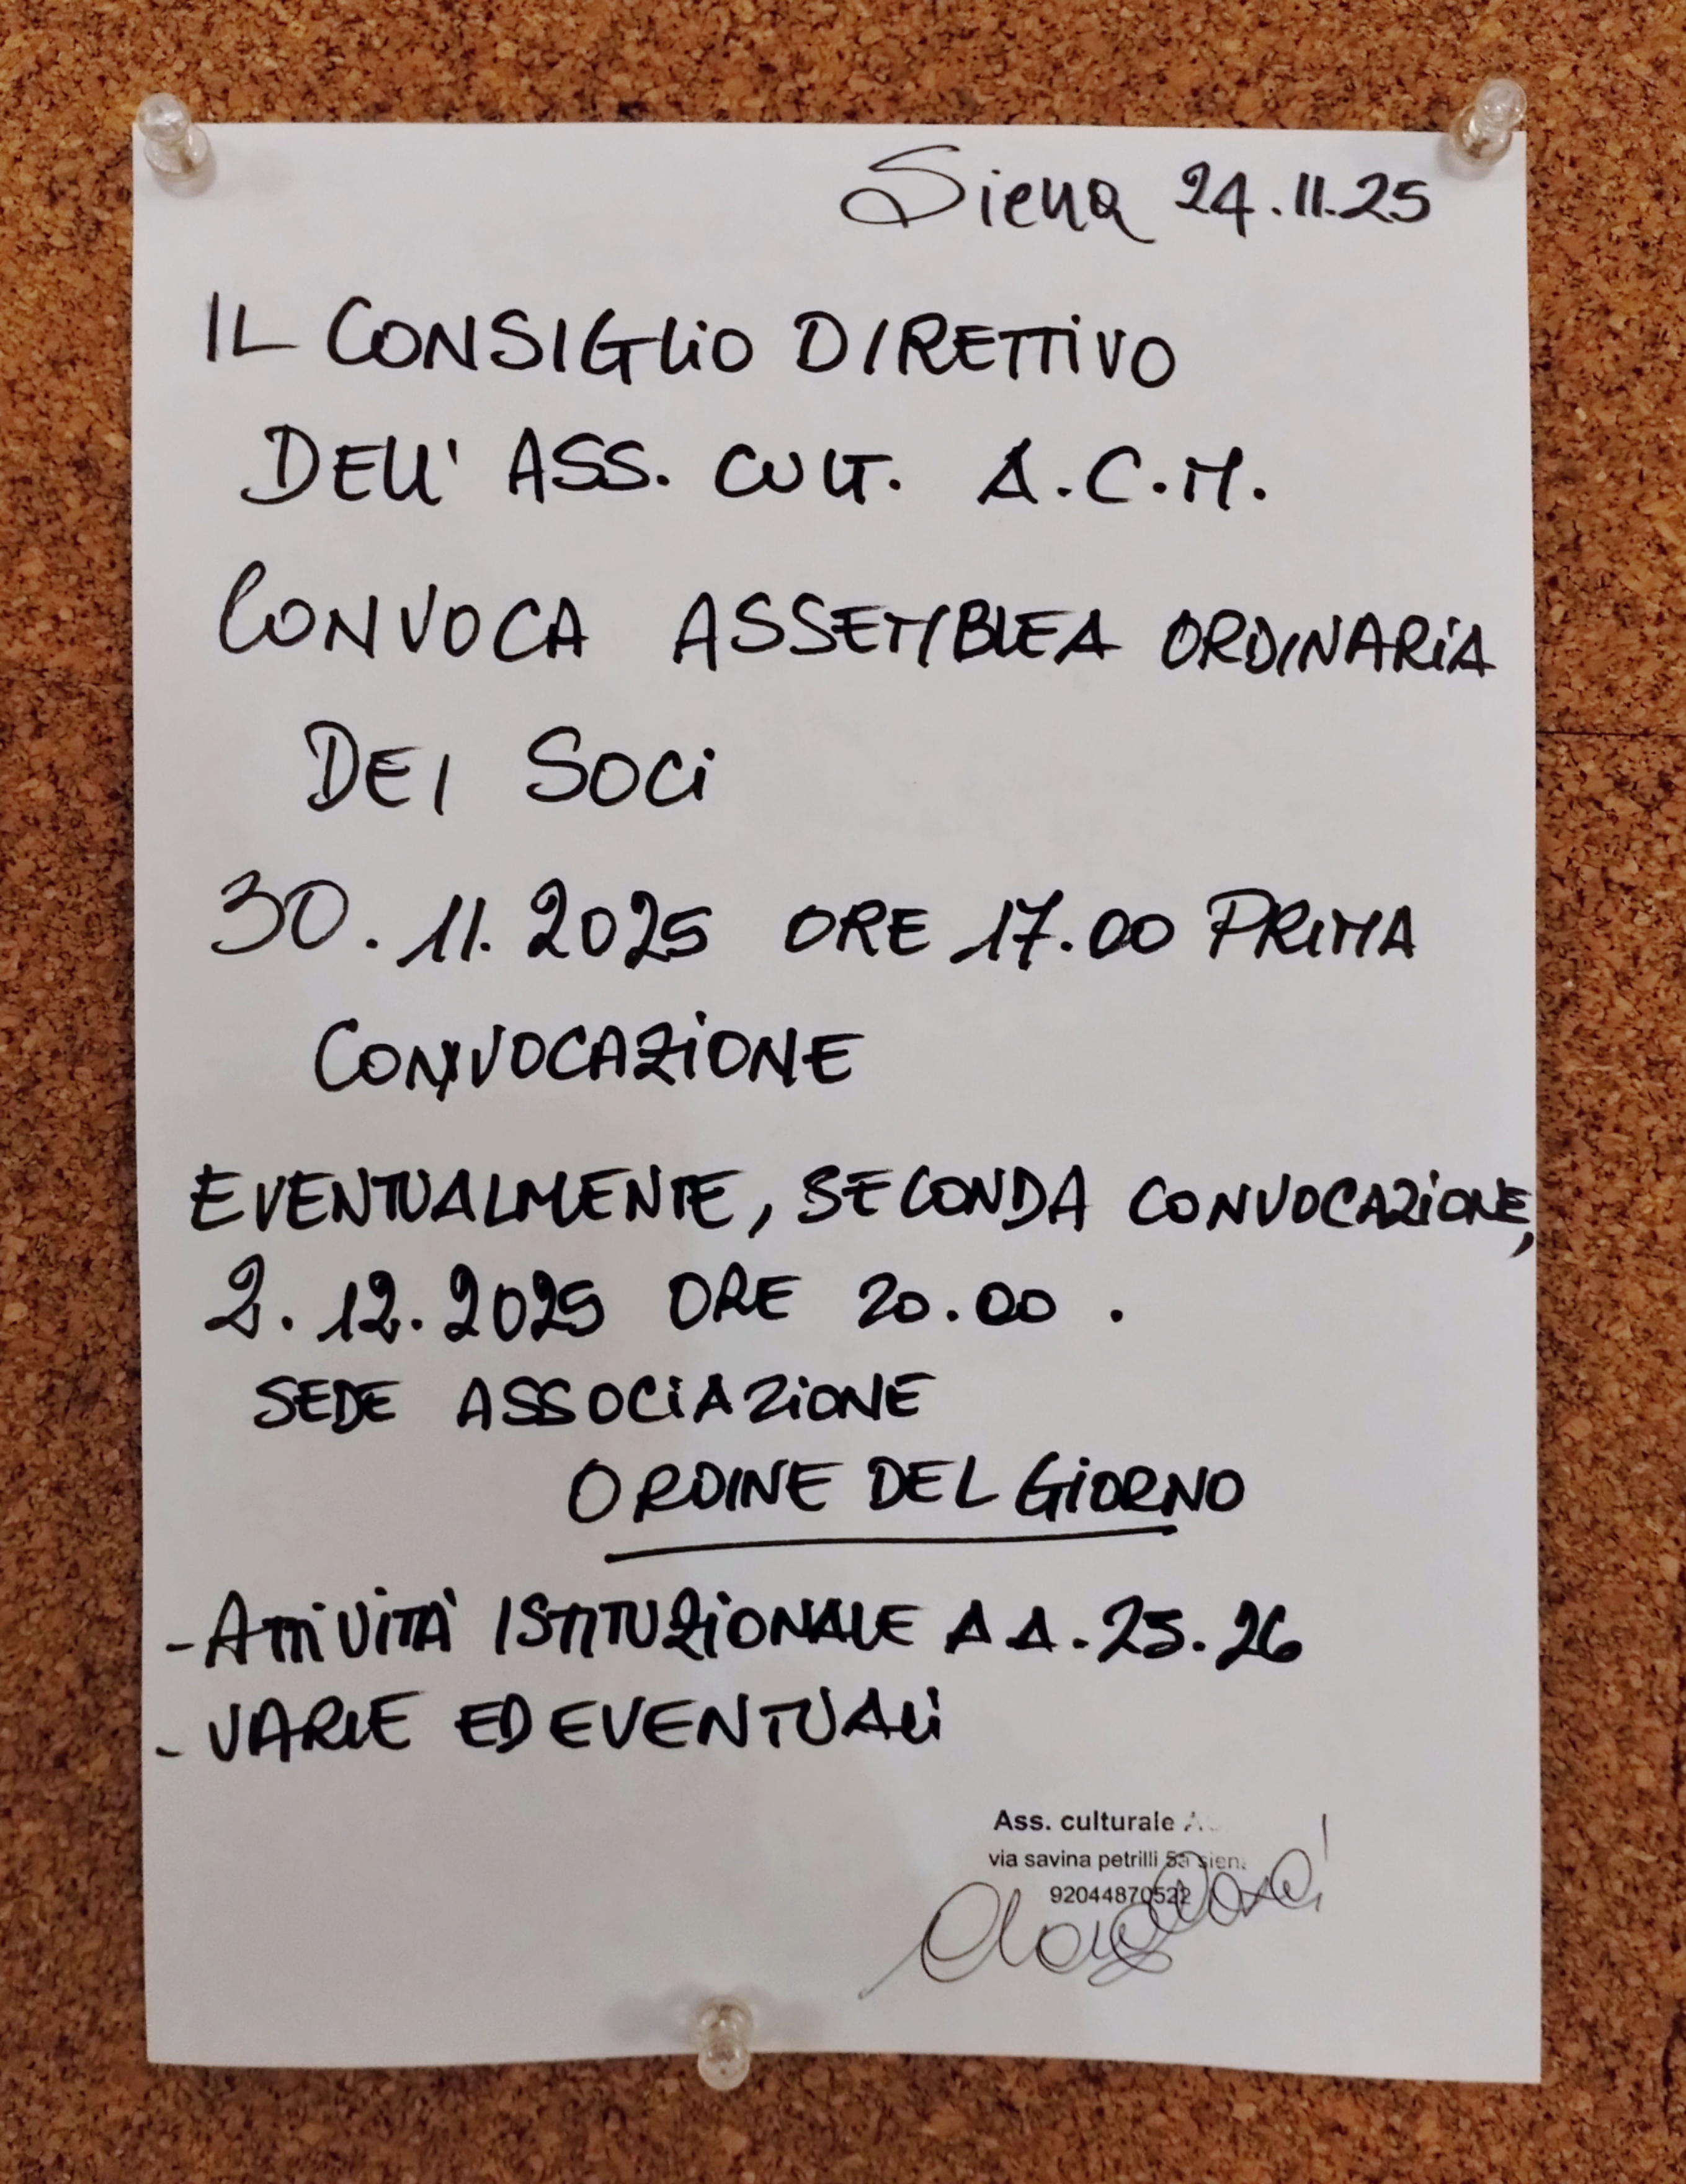 Siena 24.11.25
IL CONSIGLIO DIRETTIVO
DELL' ASS. CULT. A.C.M.
CONVOCA ASSEMBLEA ORDINARIA
DEI SOCI
30.11.2025 ORE 17.00 PRIMA
CONVOCAZIONE
EVENTUALMENTE, SECONDA CONVOCAZIONE,
2.12.2025 ORE 20.00.
SEDE ASSOCIAZIONE
ORDINE DEL GIORNO
- ATTIVITÀ ISTITUZIONALE A A.25.26
- VARIE ED EVENTUALI
Ass. culturale
via savina petrilli 5a siena
92044870522